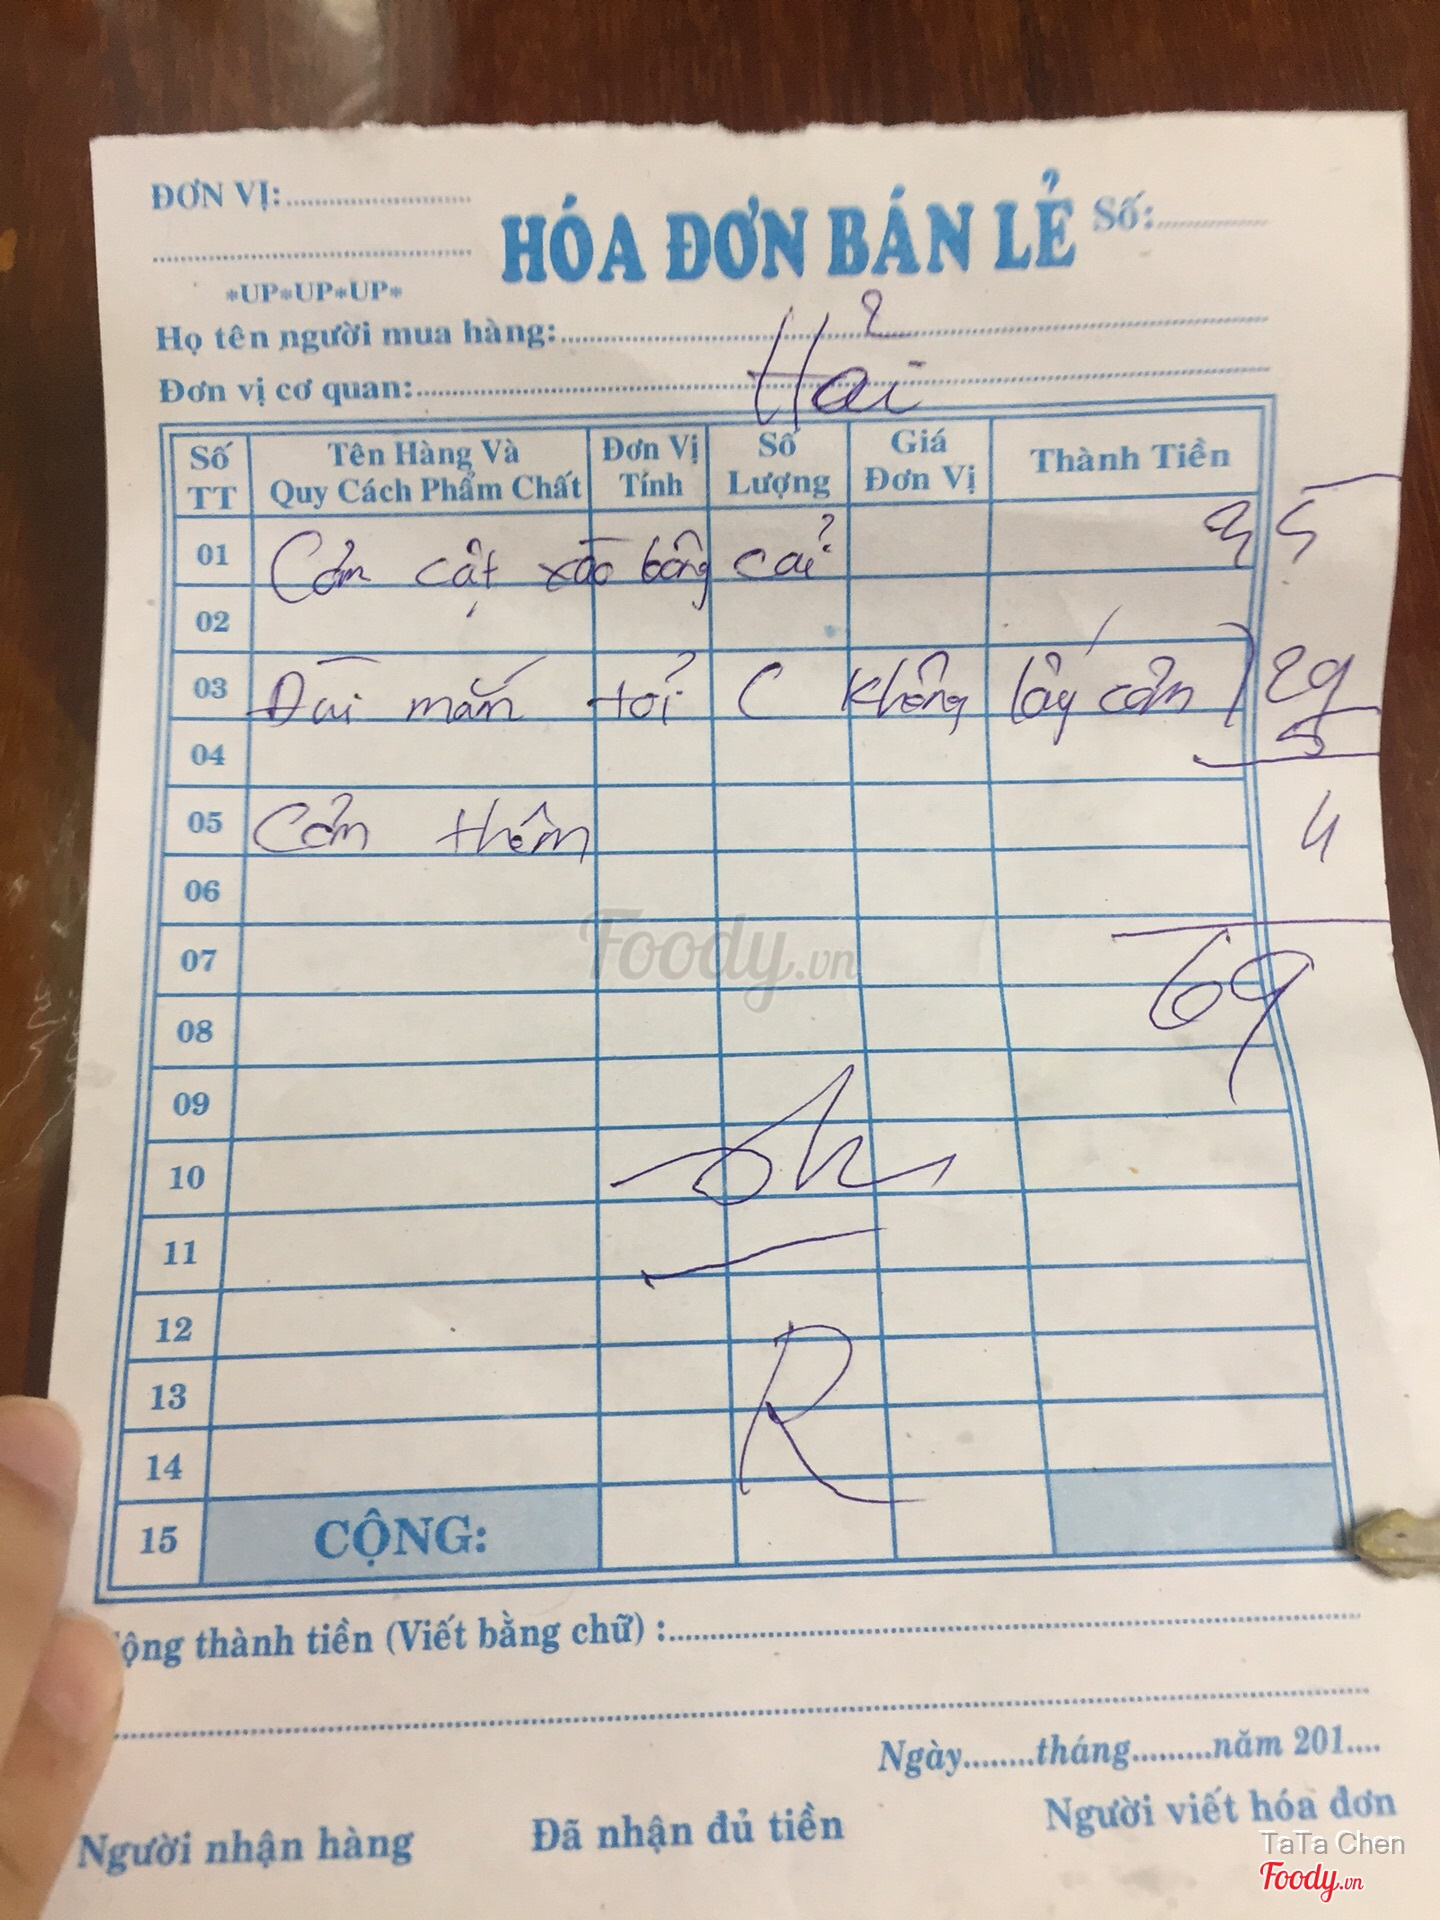 ĐƠN VỊ:
HÓA ĐƠN BÁN LẺ
Số:
*UP*UP*UP*
Họ tên người mua hàng:
Hải
Đơn vị cơ quan:
Số TT Tên Hàng Và Quy Cách Phẩm Chất Đơn Vị Tính Số Lượng Giá Đơn Vị Thành Tiền
01 Cơm cật xào bông cải 35
02
03 Đùi mắm tỏi ( không lấy cơm ) 29
04 5
05 Cơm thêm 4
06
07 69
08
09
10
11
12
13 R
14
15 CỘNG:
Cộng thành tiền (Viết bằng chữ) :
Ngày tháng năm 201
Người nhận hàng Đã nhận đủ tiền Người viết hóa đơn
Foody.vn
TaTa Chen
Foody.vn